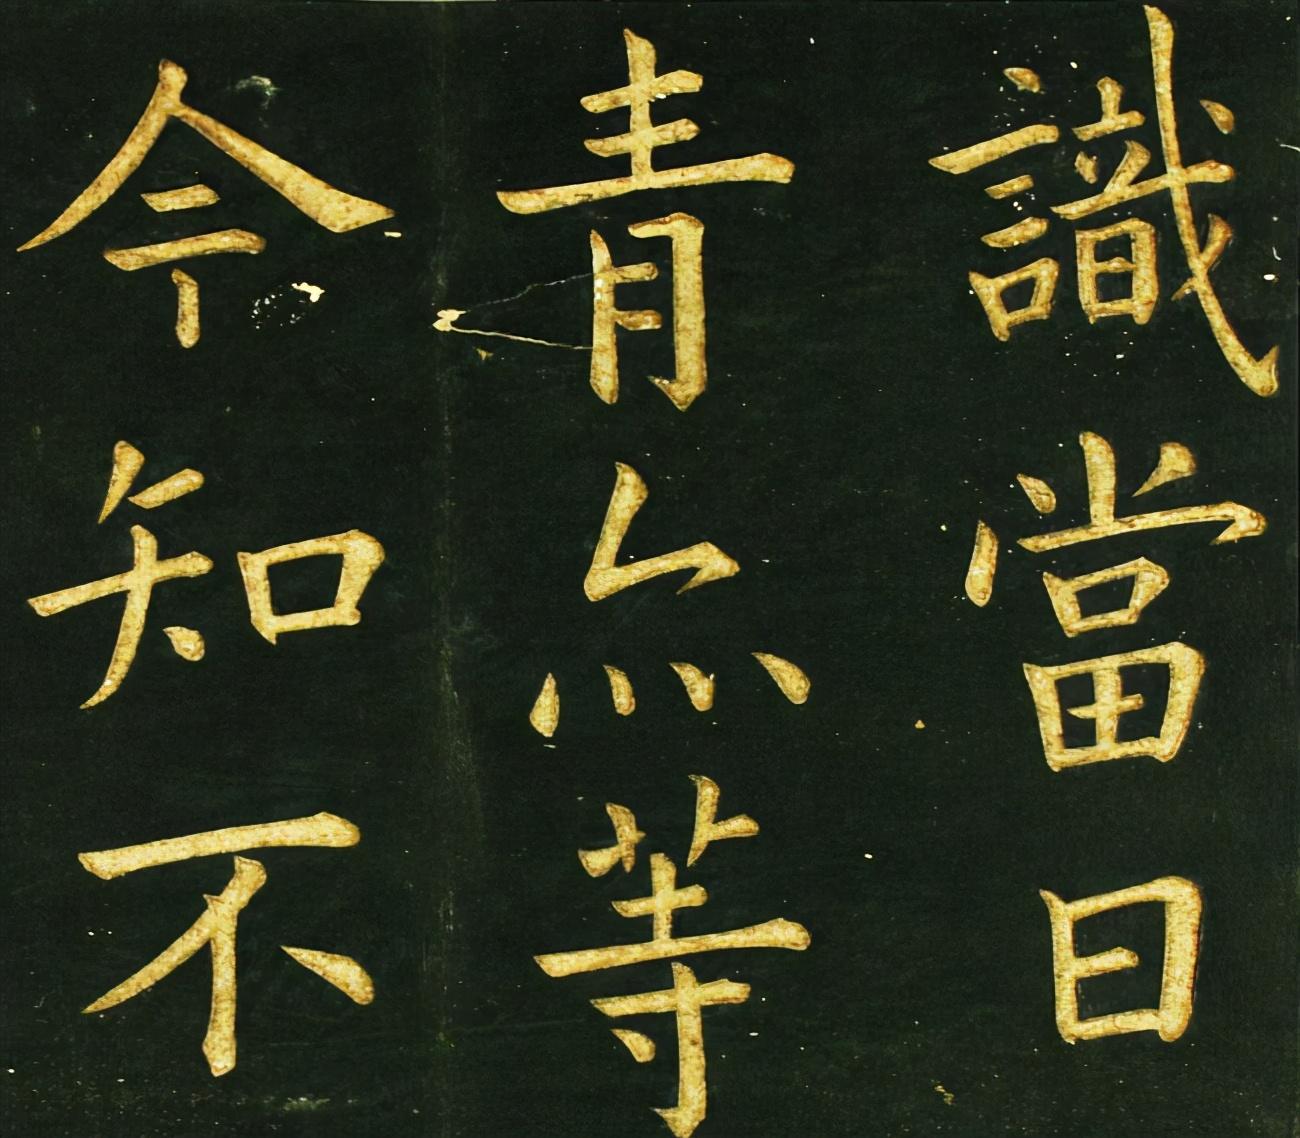 識當日
青等
令知不